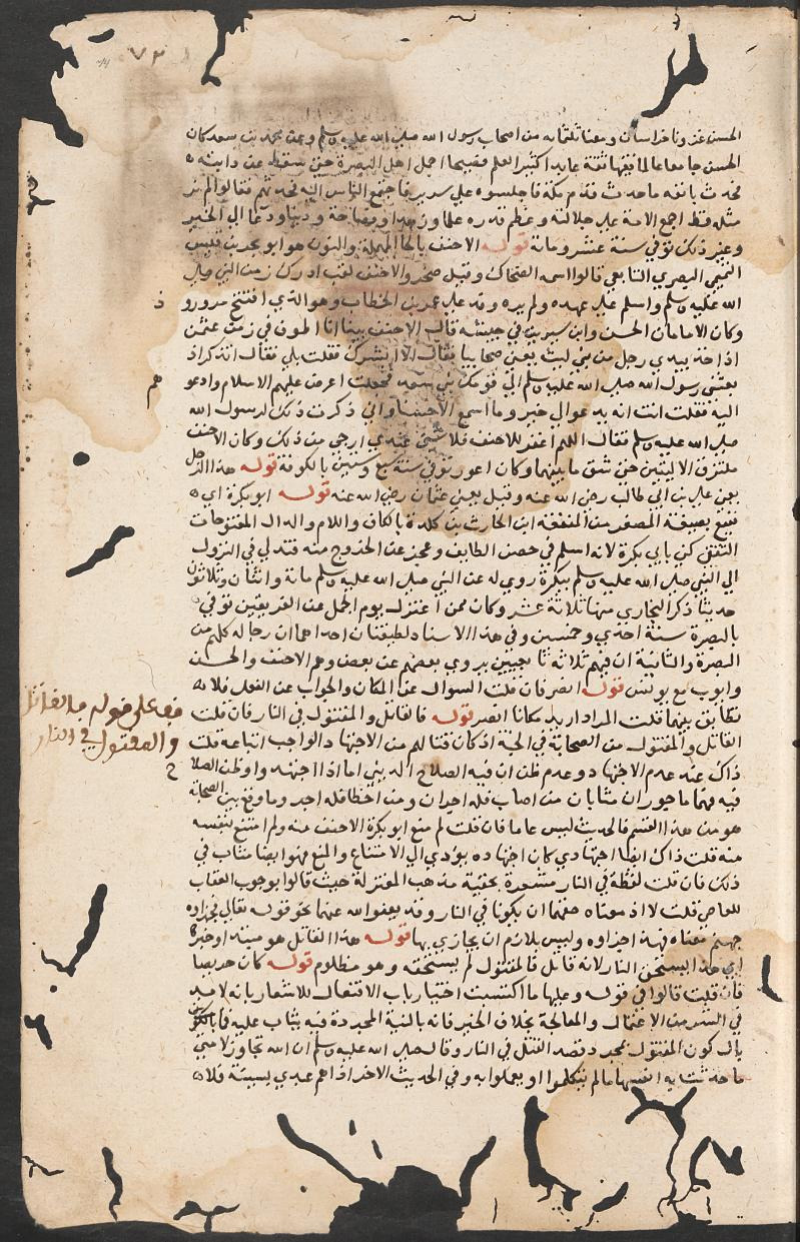 ٧٣
الحسن غزونا خراسان ومعنا ثلثمائة من اصحاب رسول الله صلى الله عليه وسلم وعن محمد بن سعد كان
الحسن جامعا عالما فقيها ثقة عابدا كثير العلم فصيحا اجمل اهل البصرة حتى سقط عن دابته
فحدث بانفه ما حدث قدم مكة فاجلسوه على سرير فاجتمع الناس اليه فحدثهم فقالوا لم نر
مثله قط اجمع الامة على جلالته وعظم قدره علما وزهدا وفصاحة ودعا الى الخير
وغير ذلك توفي سنة عشر ومائة قوله الاحنف بالحا المهملة والنون هو ابو بحر بن قيس
التميمي البصري التابعي قالوا اسمه الضحاك وقيل صخر والاحنف لقب ادرك زمن النبي صلى
الله عليه وسلم واسلم على عهده ولم يره وفد على عمر بن الخطاب وهو الذي افتتح مرورو
ذ
وكان الامامان الحسن وابن سيرين في جيشه قال الاحنف بينا انا اطوف في زمن عثمن
اذ اخذ بيدي رجل من بني ليث يعني صحابيا فقال الا ابشرك فقلت بلى فقال اتذكر اذ
بعثني رسول الله صلى الله عليه وسلم الى قومك بني سعد فجعلت اعرض عليهم الاسلام وادعو
هم
اليه فقلت انت انه يدعو الى خير وما اسمع الا حسنا واني ذكرت ذلك لرسول الله
صلى الله عليه وسلم فقال اللهم اغفر للاحنف فلا شيئ عندي ارجى من ذلك وكان الاحنف
ملتزق الاليتين حتى شق ما بينهما وكان اعور توفي سنة سبع وستين بالكوفة قوله هذا الرجل
يعني علي بن ابي طالب رضي الله عنه وقيل يعني عثمان رضي الله عنه قوله ابو بكرة اي
نفيع بصيغة المصغر من النفقة ابن الحارث بن كلدة بالكاف واللام والدال المفتوحات
الثقفي كني بابي بكرة لانه اسلم في حصن الطايف وعجز عن الخروج منه فتدلى في النزول
الى النبي صلى الله عليه وسلم ببكرة روي له عن النبي صلى الله عليه وسلم مائة واثنان وثلاثون
حديثا ذكر البخاري منها ثلاثة عشر وكان ممن اعتزل يوم الجمل عن الفريقين توفي
بالبصرة سنة احدى وخمسين وفي هذا الاسناد لطيفتان احداهما ان رجاله كلهم من
البصرة والثانية ان فيهم ثلاثة تابعيين يروي بعضهم عن بعض وهم الاحنف والحسن
وايوب مع يونس قوله انصر فان قلت السوال عن المكان والجواب عن الفعل فلا
تطابق بينهما قلت المراد اريد مكانا انصر قوله فالقاتل والمقتول في النار فان قلت
قف على قوله فالقاتل
والمقتول في النار
القاتل والمقتول من الصحابة في الجنة اذ كان قتالهم من الاجتهاد الواجب اتباعه قلت
ذاك عند عدم الاجتهاد وعدم ظن ان فيه الصلاح الديني اما اذا اجتهد او ظن الصلاح
فيه فهما ماجوران مثابان من اصاب فله اجران ومن اخطا فله اجر وما وقع بين الصحابة
هو من هذا القسم فالحديث ليس عاما فان قلت لم منع ابو بكرة الاحنف منه ولم امتنع بنفسه
منه قلت ذاك ايضا اجتهادي كان اجتهاده يودي الى الامتناع والمنع فهو ايضا مثاب في
ذلك فان قلت لفظة في النار مشعرة بحقية مذهب المعتزلة حيث قالوا بوجوب العقاب
للعاصي قلت لا اذ معناه حقهما ان يكونا في النار وقد يعفو الله عنهما نحو قوله تعالى فجزاوه
جهنم معناه هذا جزاوه وليس بلازم ان يجازي بها قوله هذا القاتل هو مبتدا وخبره
اي هذا يستحق النار لانه قاتل فالمقتول لم يستحقه وهو مظلوم قوله كان حريصا
فان قلت قالوا في قوله وعليها ما اكتسبت اختيار باب الافتعال للاشعار بانه لا بد
في الشر من الاعتمال والمعالجة بخلاف الخير فانه بالنية المجردة فيه يثاب عليه فما
بال كون المقتول بمجرد قصد القتل في النار وقال صلى الله عليه وسلم ان الله تجاوز لامتي
ما حدثت به انفسها ما لم يتكلموا او يعملوا به وفي الحديث الاخر اذا هم عبدي بسيئة فلا